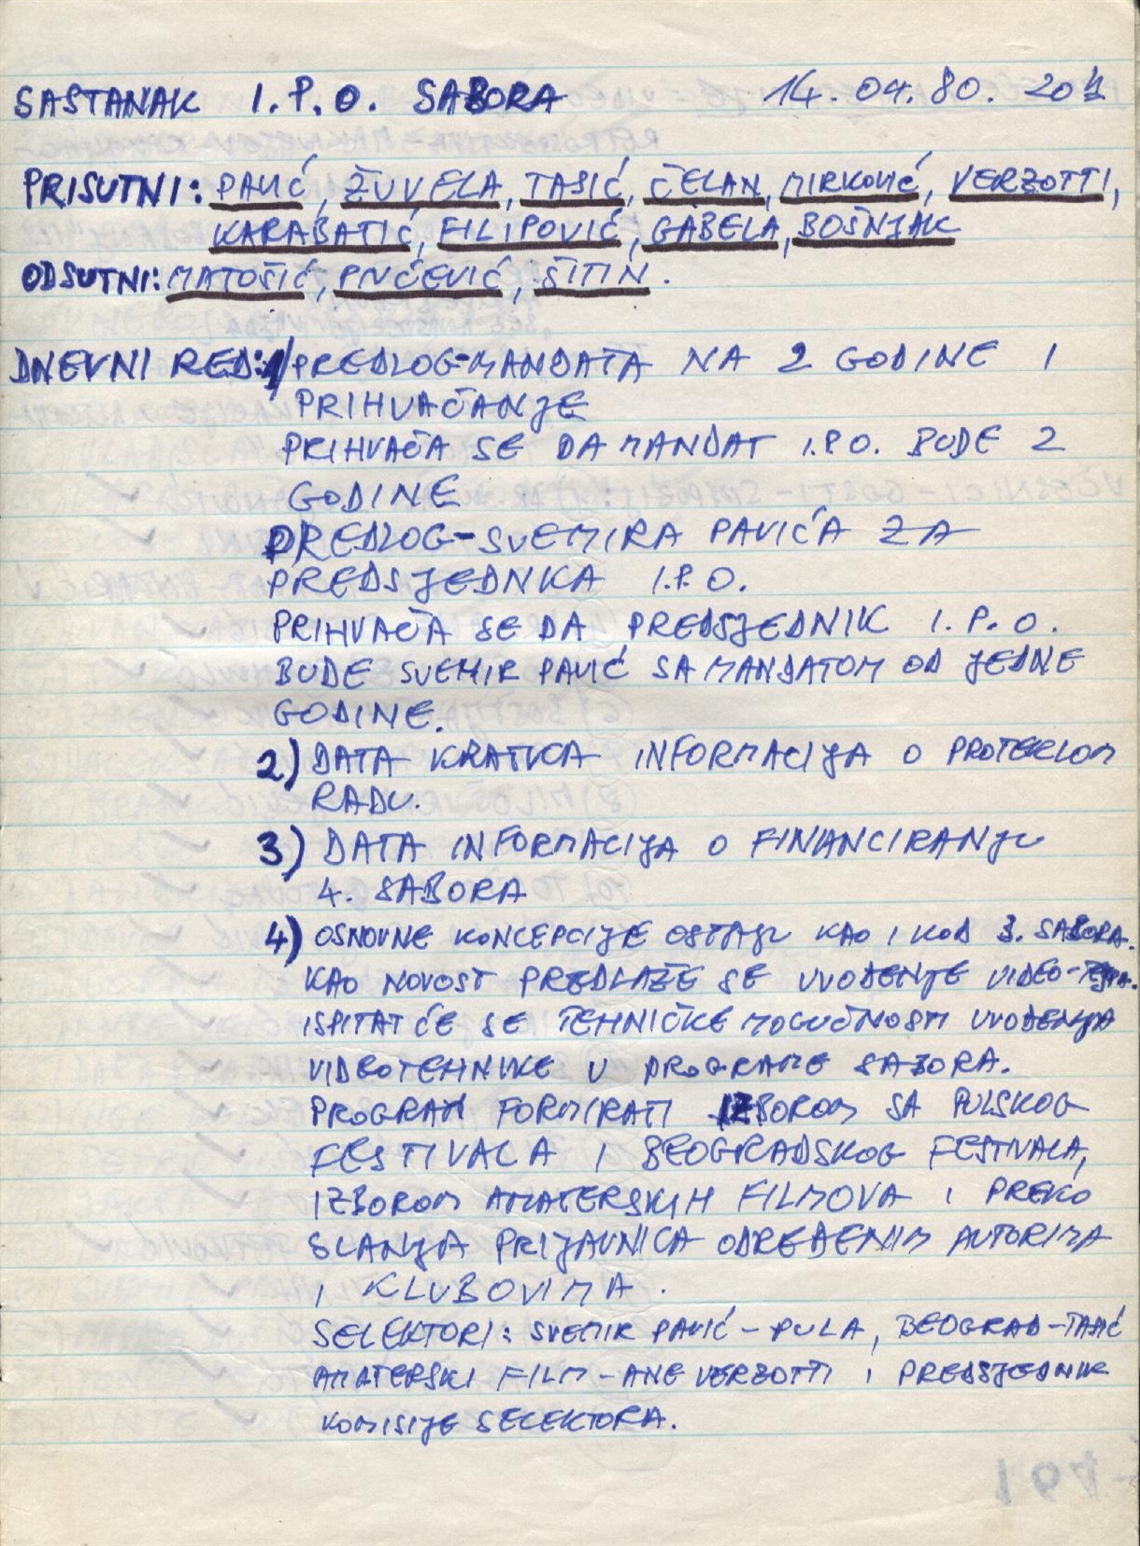 SASTANAK I.P.O. SABORA 14.04.80. 20h
PRISUTNI: PAVIĆ, ŽUVELA, TASIĆ, ČELAN, MIRKOVIĆ, VERZOTTI,
KARABATIĆ, FILIPOVIĆ, GABELA, BOŠNJAK
ODSUTNI: MATOŠIĆ, PIVČEVIĆ, ŠITIN.
DNEVNI RED: 1/ PREDLOG-MANDATA NA 2 GODINE I
PRIHVAČANJE
PRIHVAČA SE DA MANDAT I.P.O. BUDE 2
GODINE
PREDLOG-SVEMIRA PAVIĆA ZA
PREDSJEDNKA I.P.O.
PRIHVAČA SE DA PREDSJEDNIK I.P.O.
BUDE SVEMIR PAVIĆ SA MANDATOM OD JEDNE
GODINE.
2) DATA KRATKA INFORMACIJA O PROTEKLOM
RADU.
3) DATA INFORMACIJA O FINANCIRANJU
4. SABORA
4) OSNOVNE KONCEPCIJE OSTAJU KAO I KOD 3. SABORA.
KAO NOVOST PREDLAŽE SE UVOĐENJE VIDEO-
ISPITAT ĆE SE TEHNIČKE MOGUČNOSTI UVOĐENJA
VIDEOTEHNIKE U PROGRAME SABORA.
PROGRAM FORMIRATI IZBOROM SA PULSKOG
FESTIVALA I BEOGRADSKOG FESTIVALA,
IZBOROM AMATERSKIH FILMOVA I PREKO
SLANJA PRIJAVNICA ODREĐENIM AUTORIMA
I KLUBOVIMA.
SELEKTORI: SVEMIR PAVIĆ - PULA, BEOGRAD-TASIĆ
AMATERSKI FILM-ANE VERZOTTI I PREDSJEDNIK
KOMISIJE SELEKTORA.